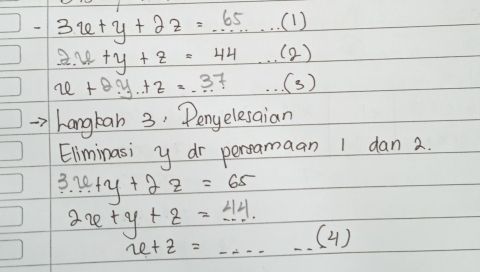 - 3x + y + 2z = 65 ...(1)
2x + y + z = 44 ...(2)
x + 2y + z = 37 ...(3)
→ Langkah 3. Penyelesaian
Eliminasi y dr persamaan 1 dan 2.
3x + y + 2z = 65
2x + y + z = 44.
x + z = .... ...(4)